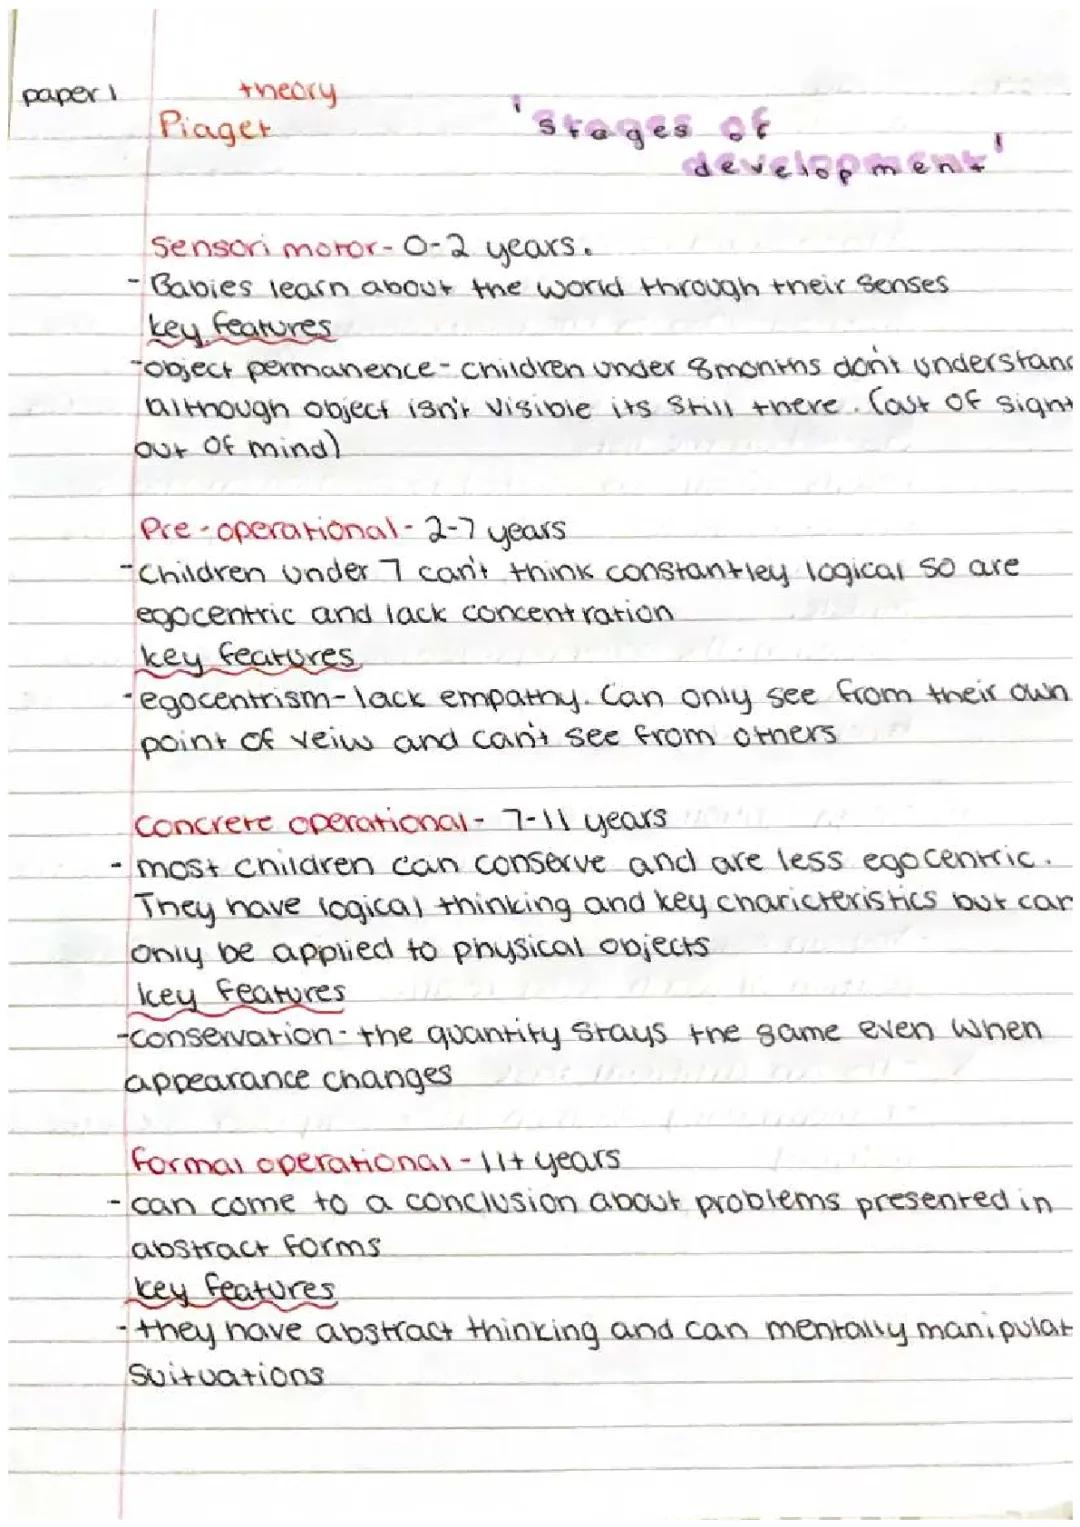 paper 1
theory
Piaget
'stages of
development'
Sensori motor - 0-2 years.
- Babies learn about the world through their senses
key features
- object permanence - children under 8 months don't understand
although object isn't visible its still there. (out of sight
out of mind)
Pre-operational - 2-7 years
- Children under 7 can't think constantley logical so are
egocentric and lack concentration
key features
- egocentrism - lack empathy. Can only see from their own
point of veiw and can't see from others
Concrete operational - 7-11 years
- most children can conserve and are less egocentric.
They have logical thinking and key charicteristics but can
only be applied to physical objects
key features
- conservation - the quantity stays the same even when
appearance changes
formal operational - 11+ years
- can come to a conclusion about problems presented in
abstract forms
key features
- they have abstract thinking and can mentally manipulat
suituations